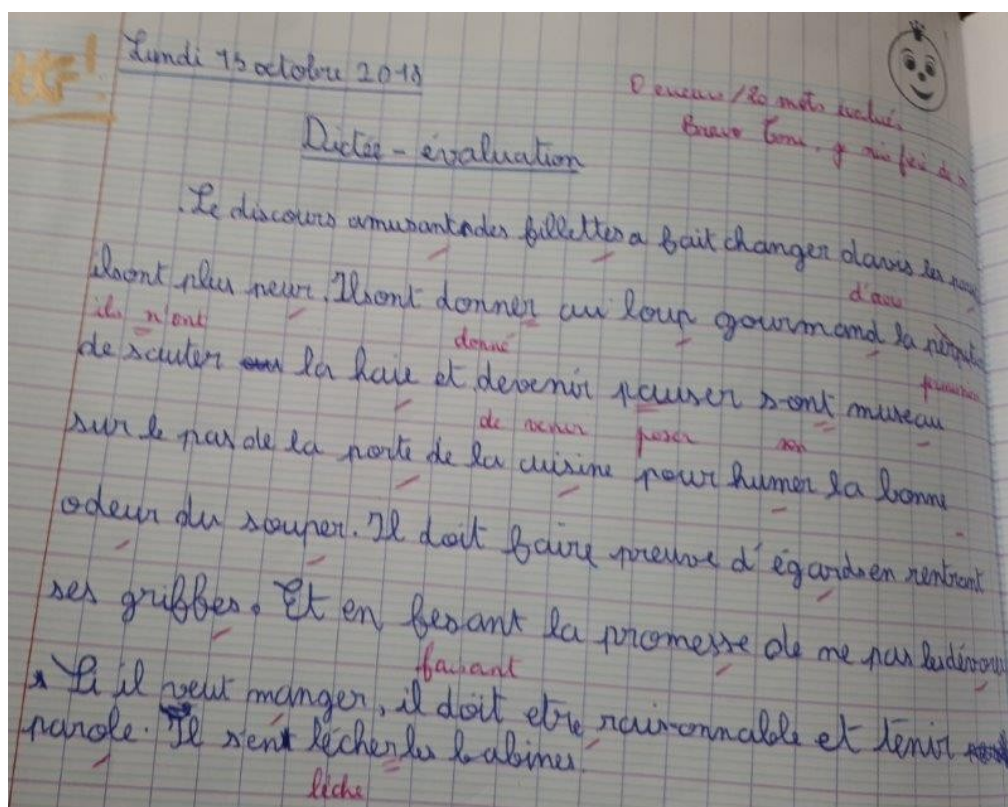 Lundi 15 octobre 2018
0 erreur / 20 mots évalué
Bravo
Dictée - évaluation
Le discours amusant des fillettes a fait changer davis les
d'avis
ilsont plus peur. Ilsont donner au loup gourmand la
ils n'ont donné permission
de sauter la haie et devenir pauser sont museau
de venir poser son
sur le pas de la porte de la cuisine pour humer la bonne
odeur du souper. Il doit faire preuve d'égards en rentrant
ses griffes. Et en fesant la promesse de ne pas les
faisant
Si il veut manger, il doit etre raisonnable et tenir
parole. Il s'ent lécher les babines.
lèche